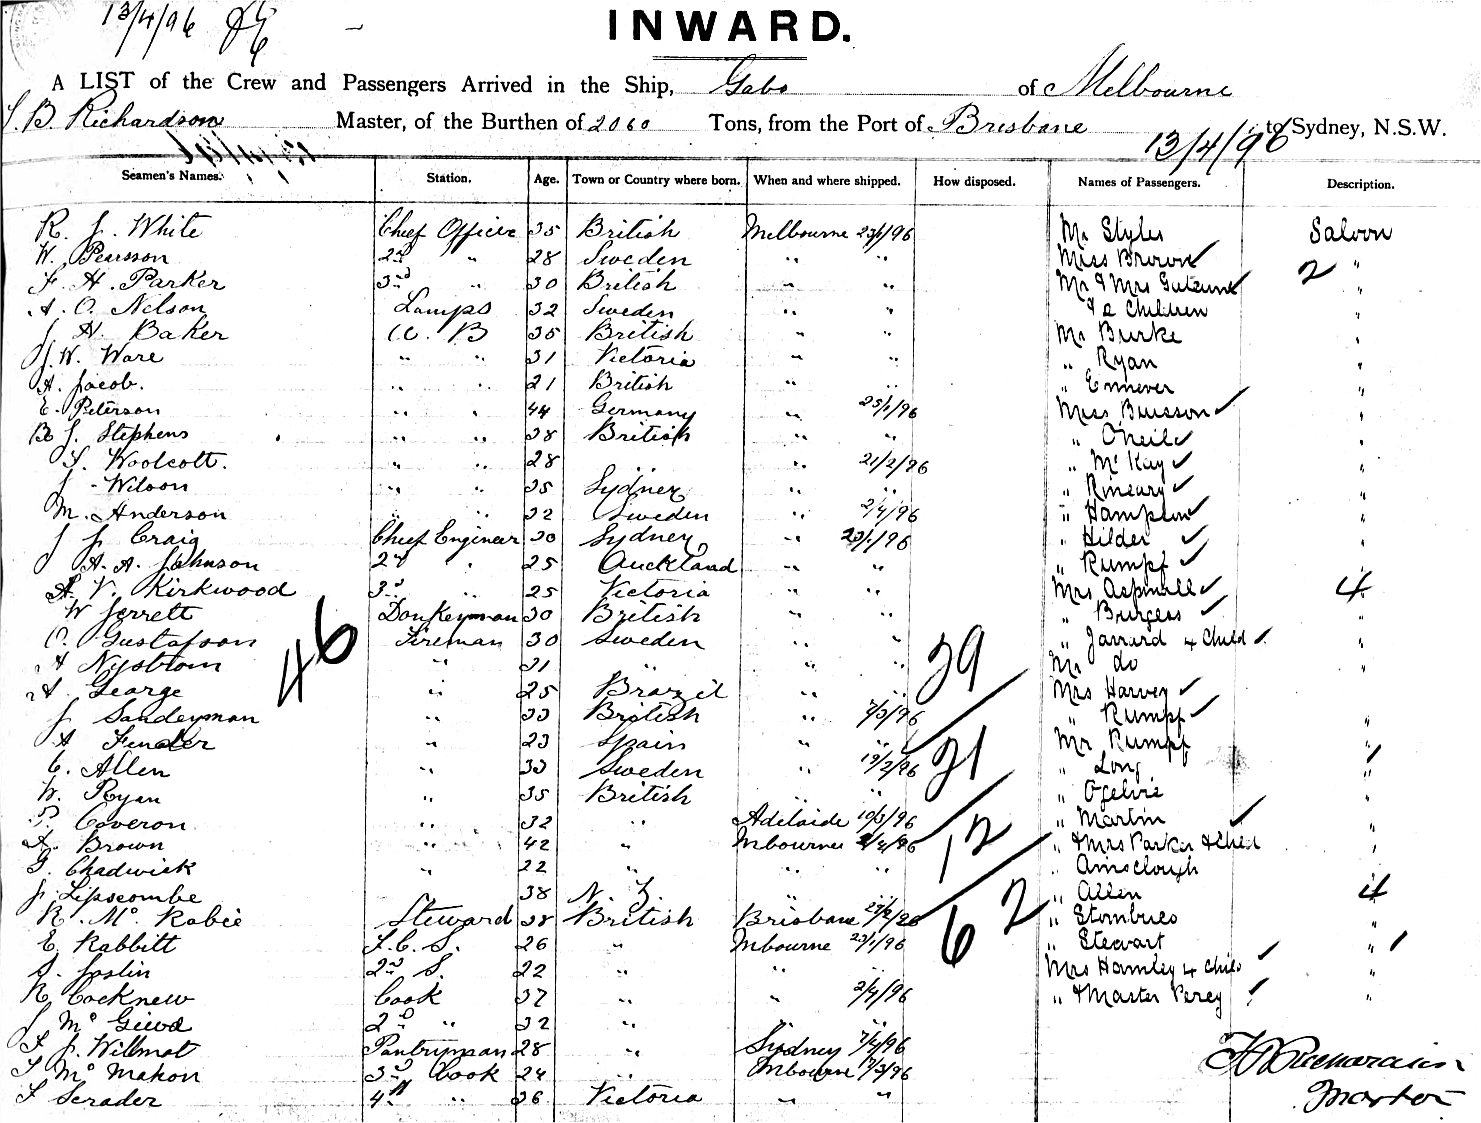 13/4/96
INWARD.
A LIST of the Crew and Passengers Arrived in the Ship, Gabo of Melbourne
Richardson Master, of the Burthen of 2060 Tons, from the Port of Brisbane to Sydney, N.S.W.
13/4/96
Seamen's Names. Station. Age. Town or Country where born. When and where shipped. How disposed. Names of Passengers. Description.
R. J. White Chief Officer 35 British Melbourne 23/1/96 Mr Styles Saloon
W. Pearsson 2nd " 28 Sweden " " Miss Brown ✓ 2 "
F. H. Parker 3rd " 30 British " " Mr & Mrs ✓ "
A. O. Nelson Lamps 32 Sweden " " & 2 Children "
J. H. Baker A. B 35 British " " Mr Burke "
J. W. Ware " " 31 Victoria " " " Ryan "
A. Jacob. " " 21 British " " " Ennever "
E. Peterson " " 44 Germany " 25/1/96 Miss Buisson ✓ "
B J. Stephens " " 38 British " " " O'Neil ✓ "
Woolcott. " " 28 " " 21/2/96 " McKay ✓ "
J. Wilson " " 35 Sydney " " " ✓ "
M. Anderson " " 32 Sweden " 2/4/96 " Hampton ✓ "
J J. Craig Chief Engineer 30 Sydney " 23/1/96 " Hilder ✓ "
A. A. Johnson 2nd " 25 Auckland " " " Rumpf ✓ "
A. V. Kirkwood 3rd 25 Victoria " " Mrs Aspinall ✓ 4
W Jerrett Donkeyman 30 British " " " Burgess ✓ "
O. Gustafson Fireman 30 Sweden " " " Jarrard & Child ✓ "
A Nystrom " 31 " " " Mr do "
A. George " 25 Brazil " " Mrs Harvey ✓
46
39
J Sandeyman " 33 British " 7/3/96 " Rumpf ✓ "
A " 23 Spain " " Mr Rumpf "
C. Allen " 33 Sweden " 19/2/96 " Long "
21
W. Ryan " 35 British " " " Ogelvie "
" 32 " Adelaide 10/3/96 " Martin ✓ "
A. Brown " 42 " Mbourne 2/4/96 " & Mrs Parker & Child "
12
G. Chadwick " 22 " " " " Ainsclough "
J. Lipscombe " 38 N. Z " " " Allen 4
R. Mc Robie Steward 38 British Brisbane 27/2/96 " "
E. Rabbitt F. C. S. 26 " Mbourne 23/1/96 " Stewart "
62
J. Joslin 2nd S. 22 " " " Mrs Hamley & Child ✓ "
R Cocknew Cook 37 " " 2/4/96 " & Master Percy ✓ "
J Mc 2nd " 32 " " "
F J. Willmot Pantryman 28 " Sydney 7/4/96
Mc Mahon 3rd Cook 24 " Mbourne 17/3/96
F Scrader 4th " 26 Victoria " "
Richardson
Master